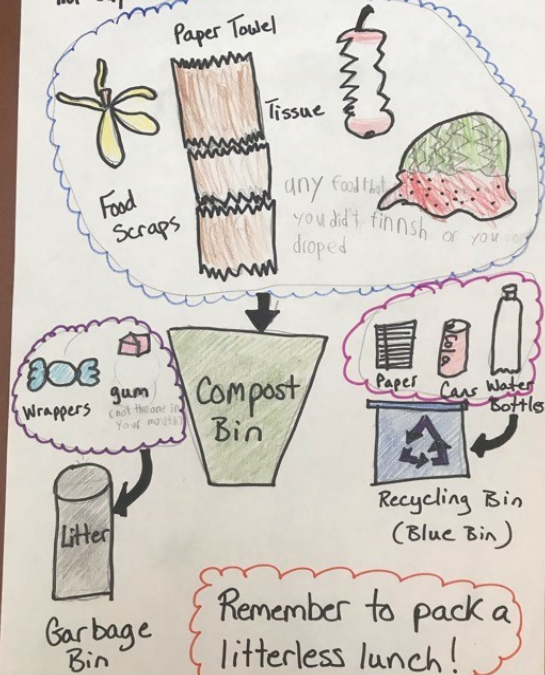 Paper Towel
Tissue
Food
Scraps
any food that
you didn't finnsh or you
droped
Wrappers
gum
(not the one in
your mouth)
Compost
Bin
Paper
Cola
Cans
Water
Bottles
Litter
Recycling Bin
(Blue Bin)
Garbage
Bin
Remember to pack a
litterless lunch!